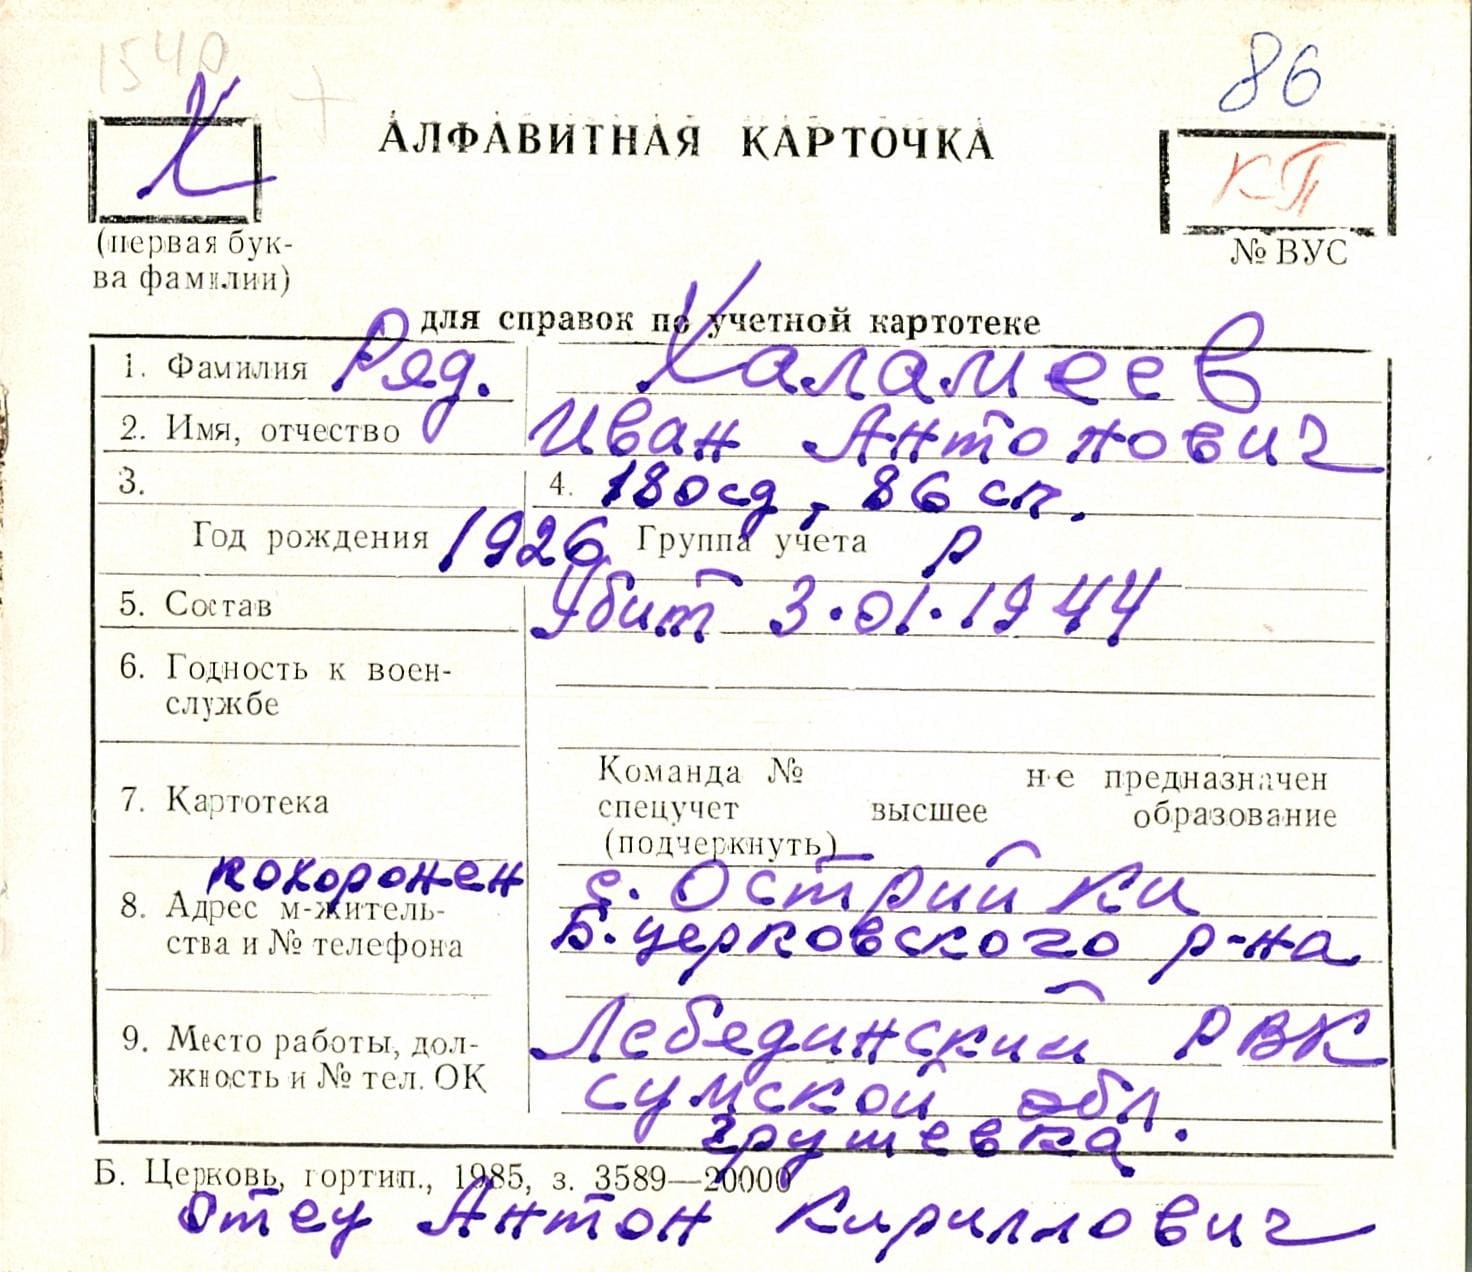 1540
Х
+
АЛФАВИТНАЯ КАРТОЧКА
86
КП
(первая бук-
ва фамилии)
№ ВУС
для справок по учетной картотеке
1. Фамилия Ряд. Халамеев
2. Имя, отчество Иван Антонович
3. 4. 180сд, 86 сп.
Год рождения 1926 Группа учета Р
5. Состав Убит 3.01.1944
6. Годность к воен-
службе
7. Картотека
Команда № не предназначен
спецучет высшее образование
(подчеркнуть)
похоронен с. Острийки
8. Адрес м-житель-
ства и № телефона
Б.церковского р-на
9. Место работы, дол-
жность и № тел. ОК
Лебединский РВК
сумской обл.
грушевка.
Б. Церковь, гортип., 1985, з. 3589—20000
Отец Антон Кириллович